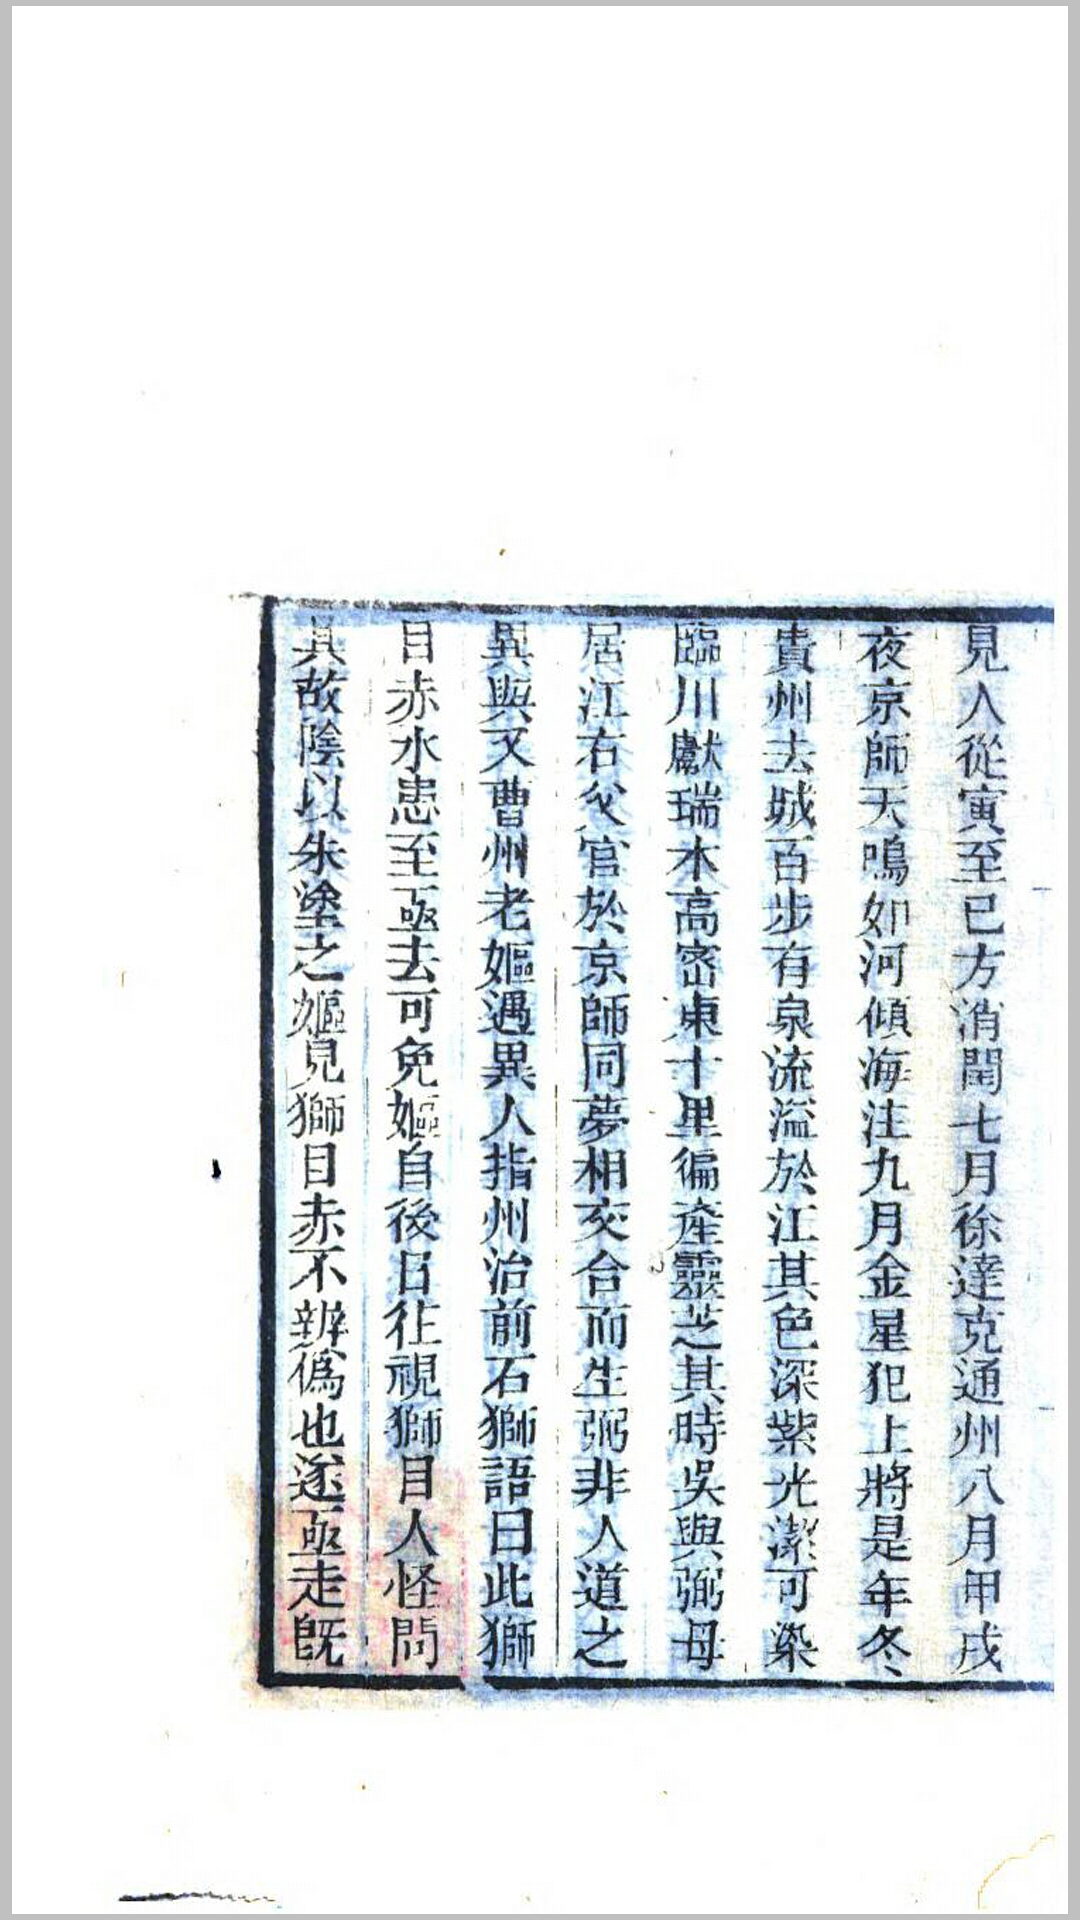 見人從寅至巳方消閏七月徐達克通州八月甲戌
夜京師天鳴如河傾海注九月金星犯上將是年冬
貴州去城百步有泉流溢於江其色深紫光潔可染
臨川獻瑞木高密東十里徧產靈芝其時吳與弼母
居江右父官於京師同夢相交合而生弼非人道之
異與又曹州老嫗遇異人指州治前石獅語曰此獅
目赤水患至亟去可免嫗自後日往視獅目人怪問
其故陰以朱塗之嫗見獅目赤不辨偽也遂亟走旣